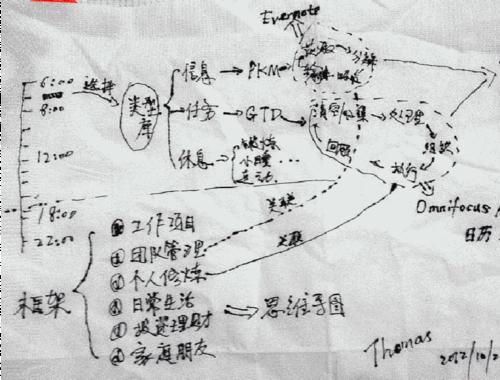 Evernote
6:00 选择
8:00
12:00
18:00
22:00
类型库
信息 → PKM
任务 → GTD
休息
锻炼
小睡
运动 ...
获取
分解
清空/收集
处理
组织
执行
回顾
Omnifocus/
日历
关联
关联
框架
① 工作项目
② 团队管理
③ 个人修炼
④ 日常生活
⑤ 投资理财
⑥ 家庭朋友
思维导图
Thomas
2012/10/2